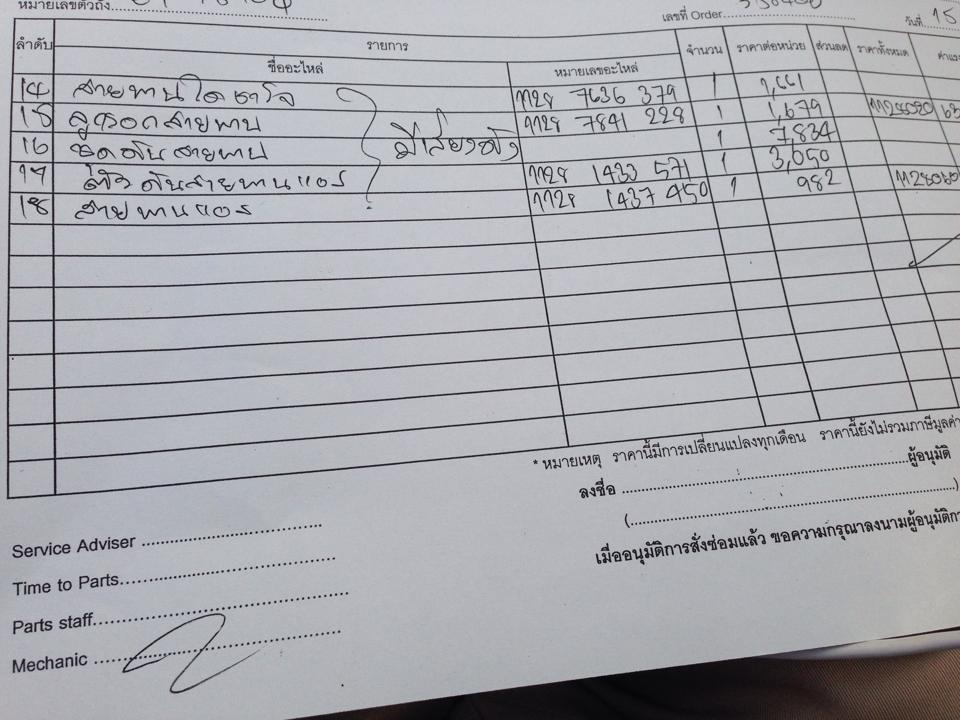 หมายเลขตัวถัง
เลขที่ Order
วันที่ 15
ลำดับ รายการ จำนวน ราคาต่อหน่วย ส่วนลด ราคาทั้งหมด ค่าแรง
ชื่ออะไหล่ หมายเลขอะไหล่
14 สายพานไดชาโจ 1128 7636 379 1 1,661
15 ลูกรอกสายพาน 1128 7841 228 1 1,679 1128020
16 ชุดดันสายพาน มีเสียงดัง 1 7,834
17 ตัวดันสายพานแอร์ 1128 1433 571 1 3,050
18 สายพานแอร์ 1128 1437 450 1 982
* หมายเหตุ ราคานี้มีการเปลี่ยนแปลงทุกเดือน ราคานี้ยังไม่รวมภาษีมูลค่า
ลงชื่อ ........ผู้อนุมัติ
(........)
เมื่ออนุมัติการสั่งซ่อมแล้ว ขอความกรุณาลงนามผู้อนุมัติ
Service Adviser
Time to Parts
Parts staff
Mechanic